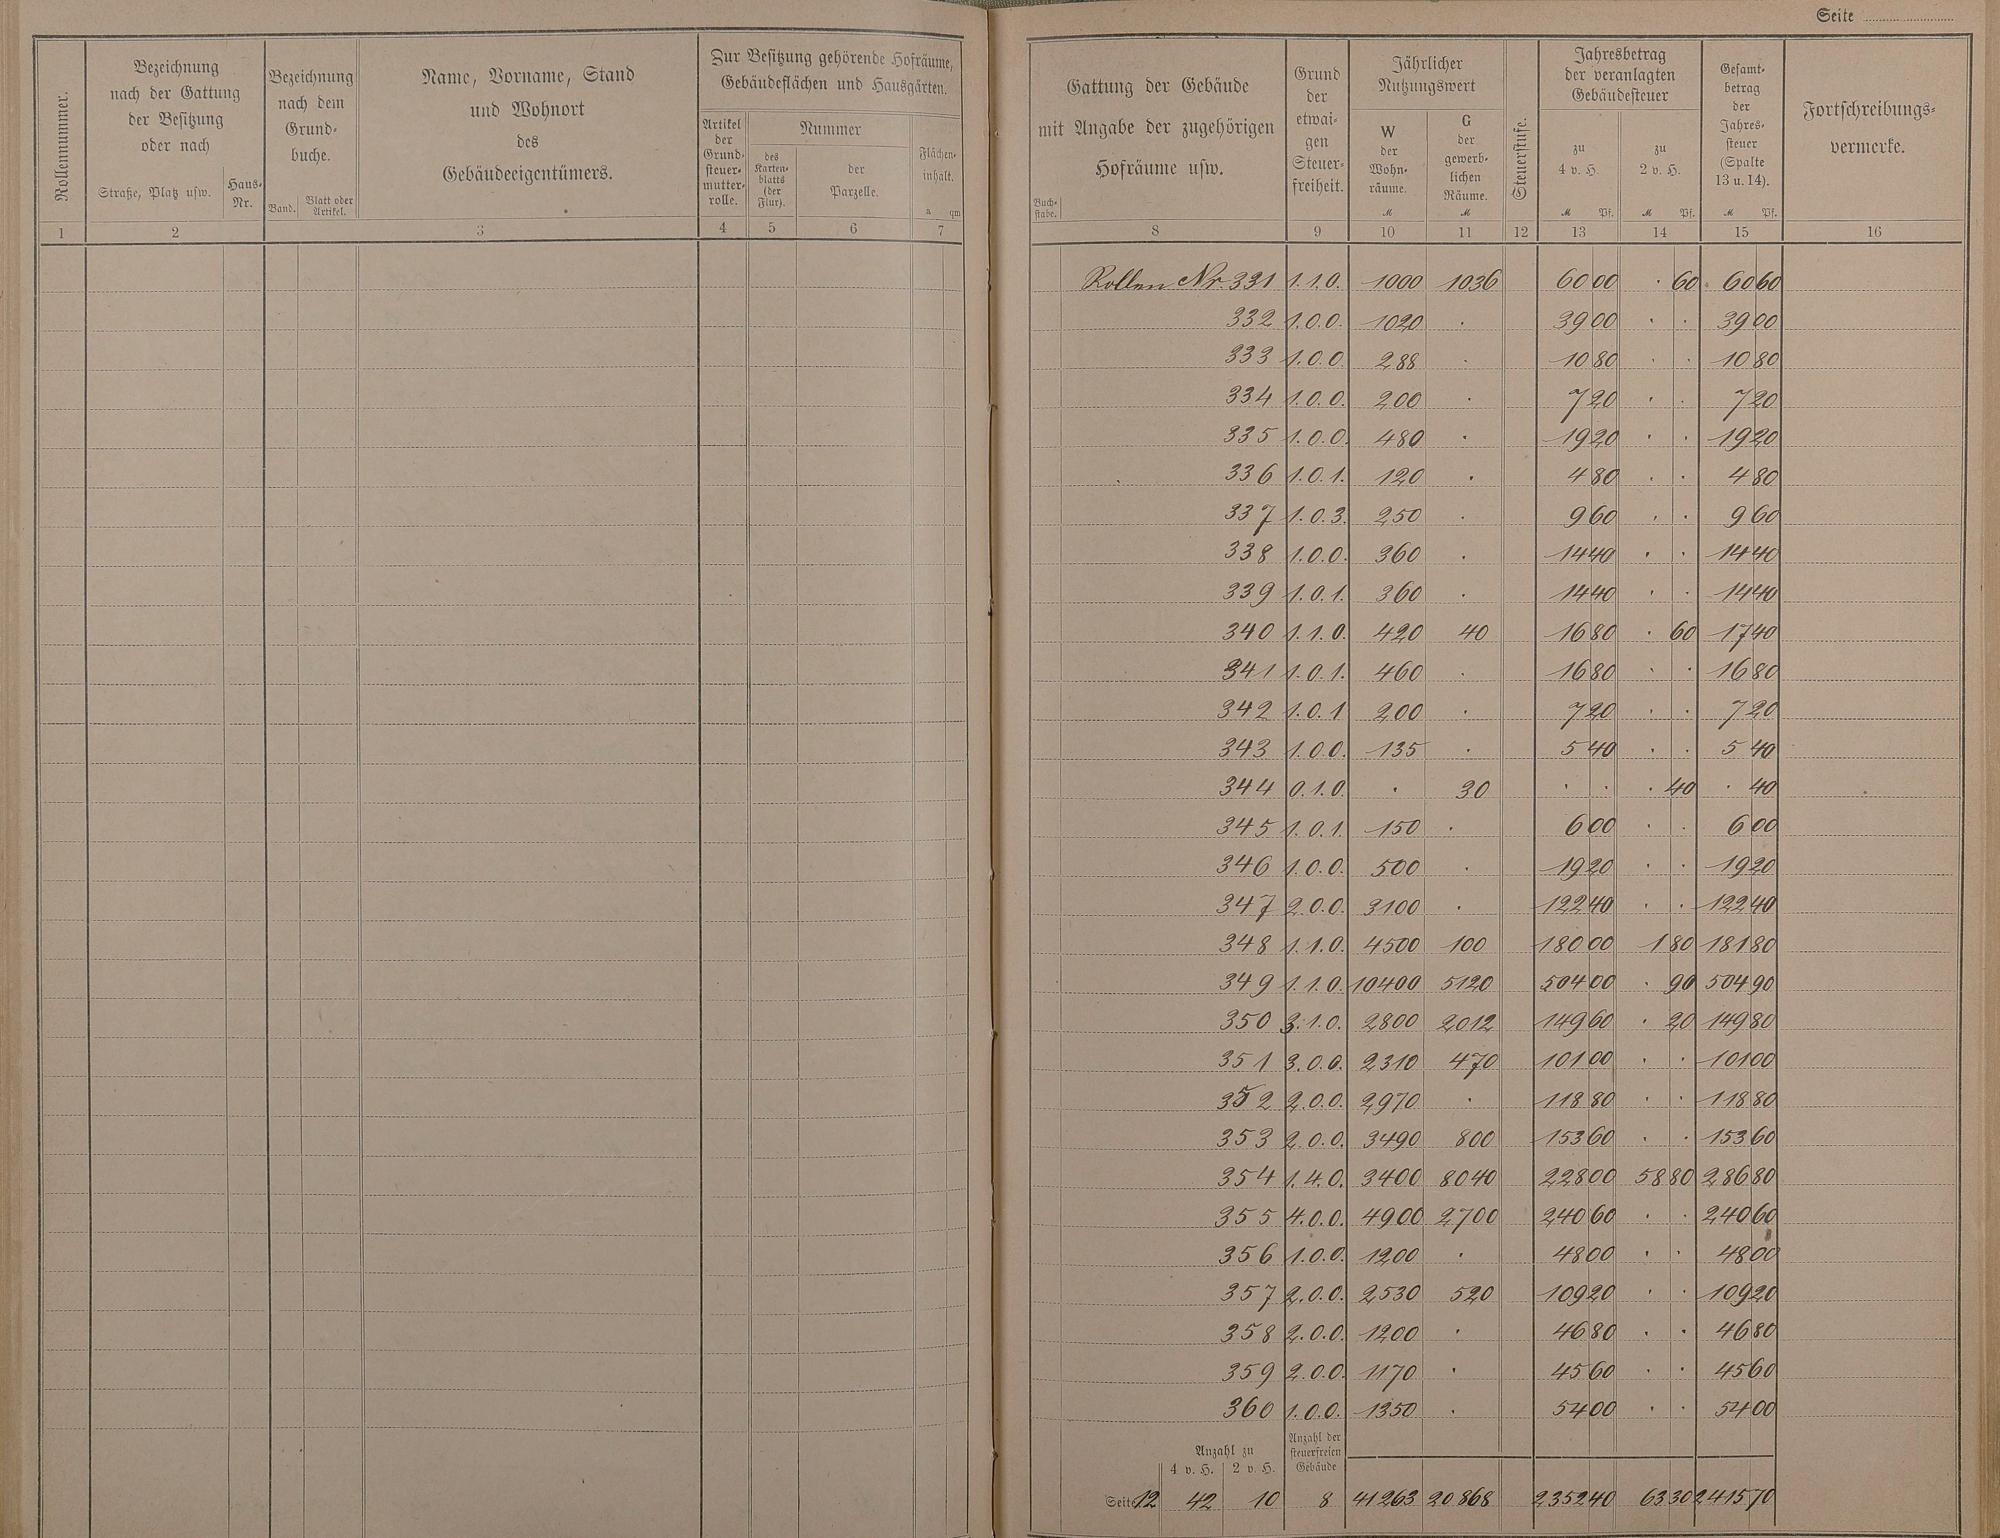 Seite
Rollennummer.
Bezeichnung
nach der Gattung
der Besitzung
oder nach
Straße, Platz usw.
Haus-
Nr.
Bezeichnung
nach dem
Grund-
buche.
Band.
Blatt oder
Artikel.
Name, Vorname, Stand
und Wohnort
des
Gebäudeeigentümers.
Zur Besitzung gehörende Hofräume,
Gebäudeflächen und Hausgärten.
Artikel
der
Grund-
steuer-
mutter-
rolle.
Nummer
des
Karten-
blatts
(der
Flur).
der
Parzelle.
Flächen-
inhalt.
a qm
1 2 3 4 5 6 7
Gattung der Gebäude
mit Angabe der zugehörigen
Hofräume usw.
Buch-
stabe.
Grund
der
etwai-
gen
Steuer-
freiheit.
Jährlicher
Nutzungswert
W
der
Wohn-
räume.
M
G
der
gewerb-
lichen
Räume.
M
Steuerstufe.
Jahresbetrag
der veranlagten
Gebäudesteuer
zu
4 v. H.
M Pf.
zu
2 v. H.
M Pf.
Gesamt-
betrag
der
Jahres-
steuer
(Spalte
13 u. 14).
M Pf.
Fortschreibungs-
vermerke.
8 9 10 11 12 13 14 15 16
Rollen Nr. 331 1.1.0. 1000 1036 60 00 . 60 60 60
332 1.0.0. 1020 . 39 00 . . 39 00
333 1.0.0 288 . 10 80 . . 10 80
334 1.0.0. 200 . 7 20 . . 7 20
335 1.0.0. 480 . 19 20 . . 19 20
336 1.0.1. 120 . 4 80 . . 4 80
337 1.0.3. 250 . 9 60 . . 9 60
338 1.0.0. 360 . 14 40 . . 14 40
339 1.0.1. 360 . 14 40 . . 14 40
340 1.1.0. 420 40 16 80 . 60 17 40
341 1.0.1. 460 . 16 80 . . 16 80
342 1.0.1 200 . 7 20 . . 7 20
343 1.0.0. 135 . 5 40 . . 5 40
344 0.1.0. . 30 . . . 40 . 40
345 1.0.1. 150 . 6 00 . . 6 00
346 1.0.0. 500 . 19 20 . . 19 20
347 2.0.0. 3100 . 122 40 . . 122 40
348 1.1.0. 4500 100 180 00 1 80 181 80
349 1.1.0. 10400 5120 504 00 . 90 504 90
350 3.1.0. 2800 2012 149 60 . 20 149 80
351 3.0.0. 2310 470 101 00 . . 101 00
352 2.0.0. 2970 . 118 80 . . 118 80
353 2.0.0. 3490 800 153 60 . . 153 60
354 1.4.0. 3400 8040 228 00 58 80 286 80
355 4.0.0. 4900 2700 240 60 . . 240 60
356 1.0.0. 1200 . 48 00 . . 48 00
357 2.0.0. 2530 520 109 20 . . 109 20
358 2.0.0. 1200 . 46 80 . . 46 80
359 2.0.0. 1170 . 45 60 . . 45 60
360 1.0.0. 1350 . 54 00 . . 54 00
Anzahl zu
4 v. H. 2 v. H.
Anzahl der
steuerfreien
Gebäude
Seite 12 42 10 8 41263 20868 2352 40 63 30 2415 70